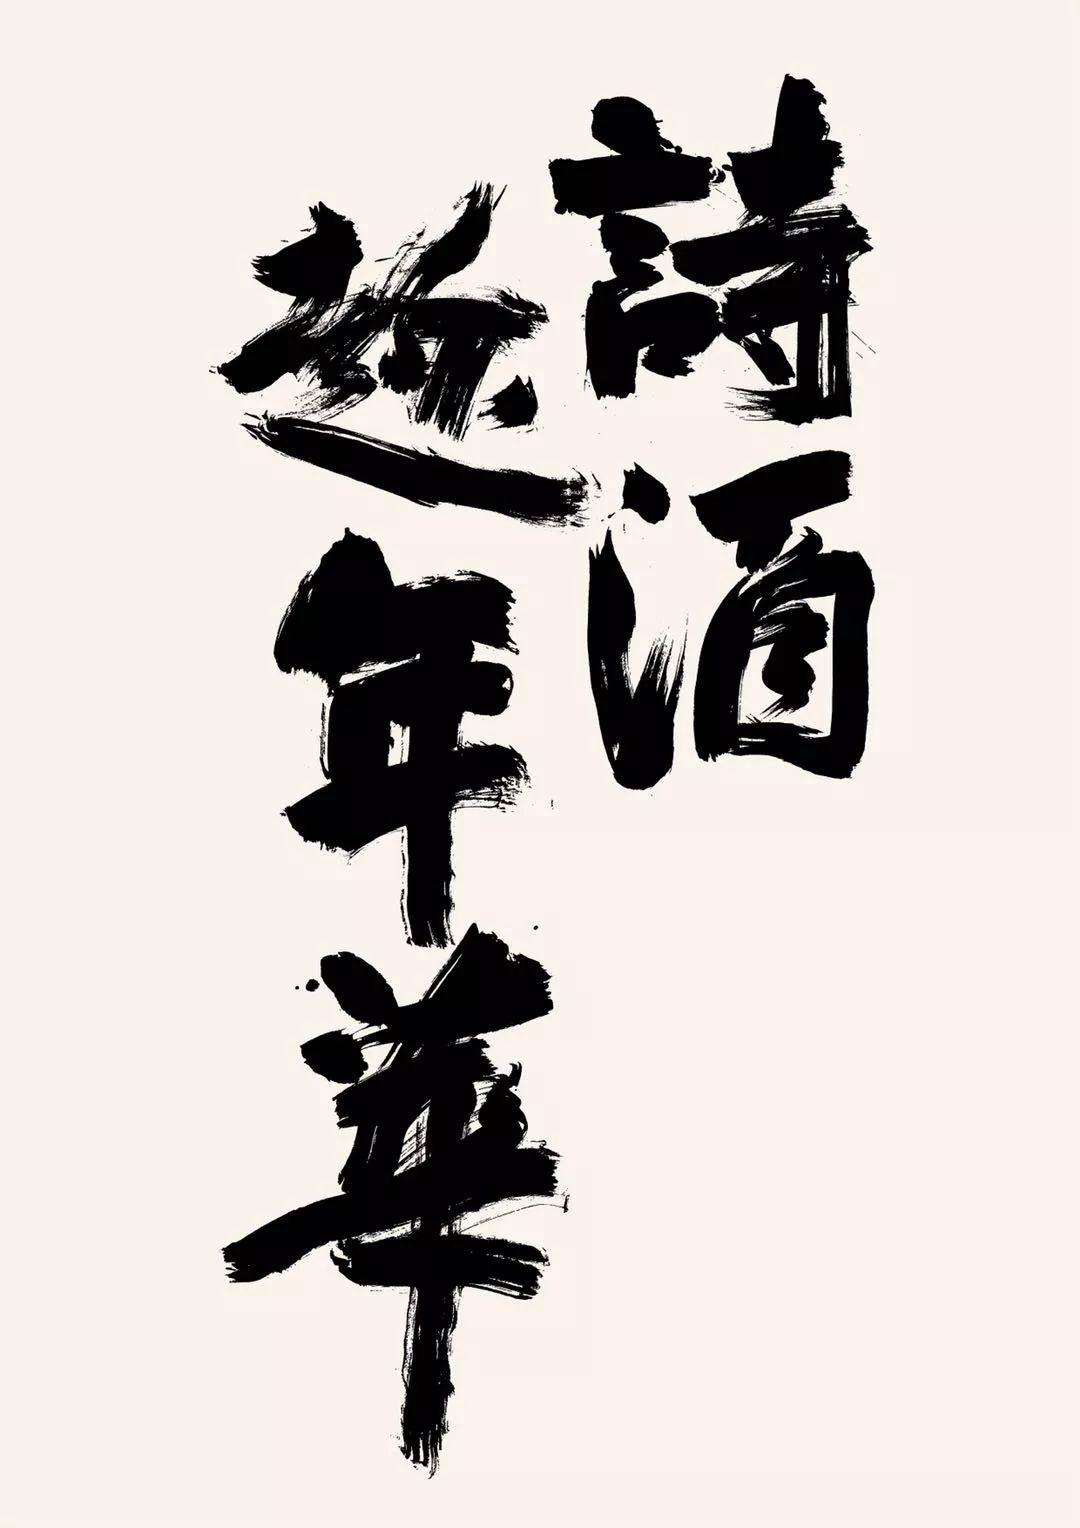 詩酒
趁年華